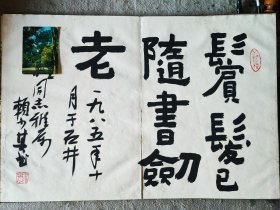 鬢髮已
隨書劒
老
一九八五年十
月于石井
同志雅属
賴少其书